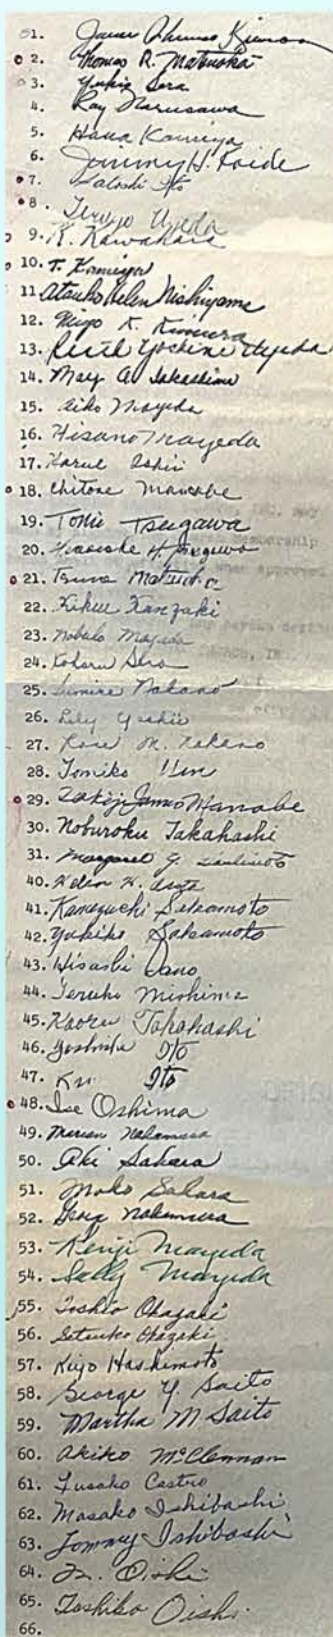 1. James
2. Thomas R. Matsuoka
3. Yukio Sera
4. Ray Narusawa
5. Hana Kamiya
6. Jimmy H. Koide
7. Satoshi Ito
8. Teruyo Uyeda
9. K. Kawahara
10. T. Kamiya
11 Atsuko Helen Nishiyama
12. K. Kimura
13. Yoshine Uyeda
14. May A. Takashima
15. Aiko Mayeda
16. Hisano Mayeda
17. Harue Ishii
18. Chitose Manabe
19. Tomie Tsugawa
20. H. Tsugawa
21. Matsuoka
22. Kikue Kanzaki
23. Nobuko Mayeda
24. Koharu Sera
25. Sumire Nakano
26. Lily Yoshii
27. Rose M. Nakano
28. Tomiko
29. James Manabe
30. Noburoku Takahashi
31. Margaret Y.
40. Helen K.
41. Kameguchi Sakamoto
42. Yukiko Sakamoto
43. Hisashi Sano
44. Teruko Mishima
45. Kaoru Takahashi
46. Ito
47. Ito
48. Ise Oshima
49. Marian Nakamura
50. Aki Sahara
51. Moko Sahara
52. Nakamura
53. Kenji Mayeda
54. Sally Mayeda
55. Toshio Okazaki
56. Setsuko Okazaki
57. Kiyo Hashimoto
58. George Y. Saito
59. Martha M Saito
60. Akiko McClennan
61. Fusako Castro
62. Masako Ishibashi
63. Tommy Ishibashi
64. Oishi
65. Toshiko Oishi
66.